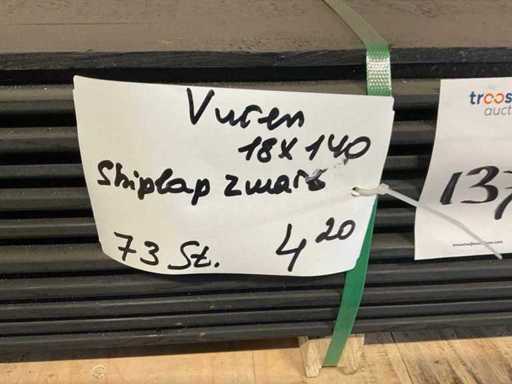 Vuren
18x140
Shiplap zwart
73 St. 4 20
troos
auct
137